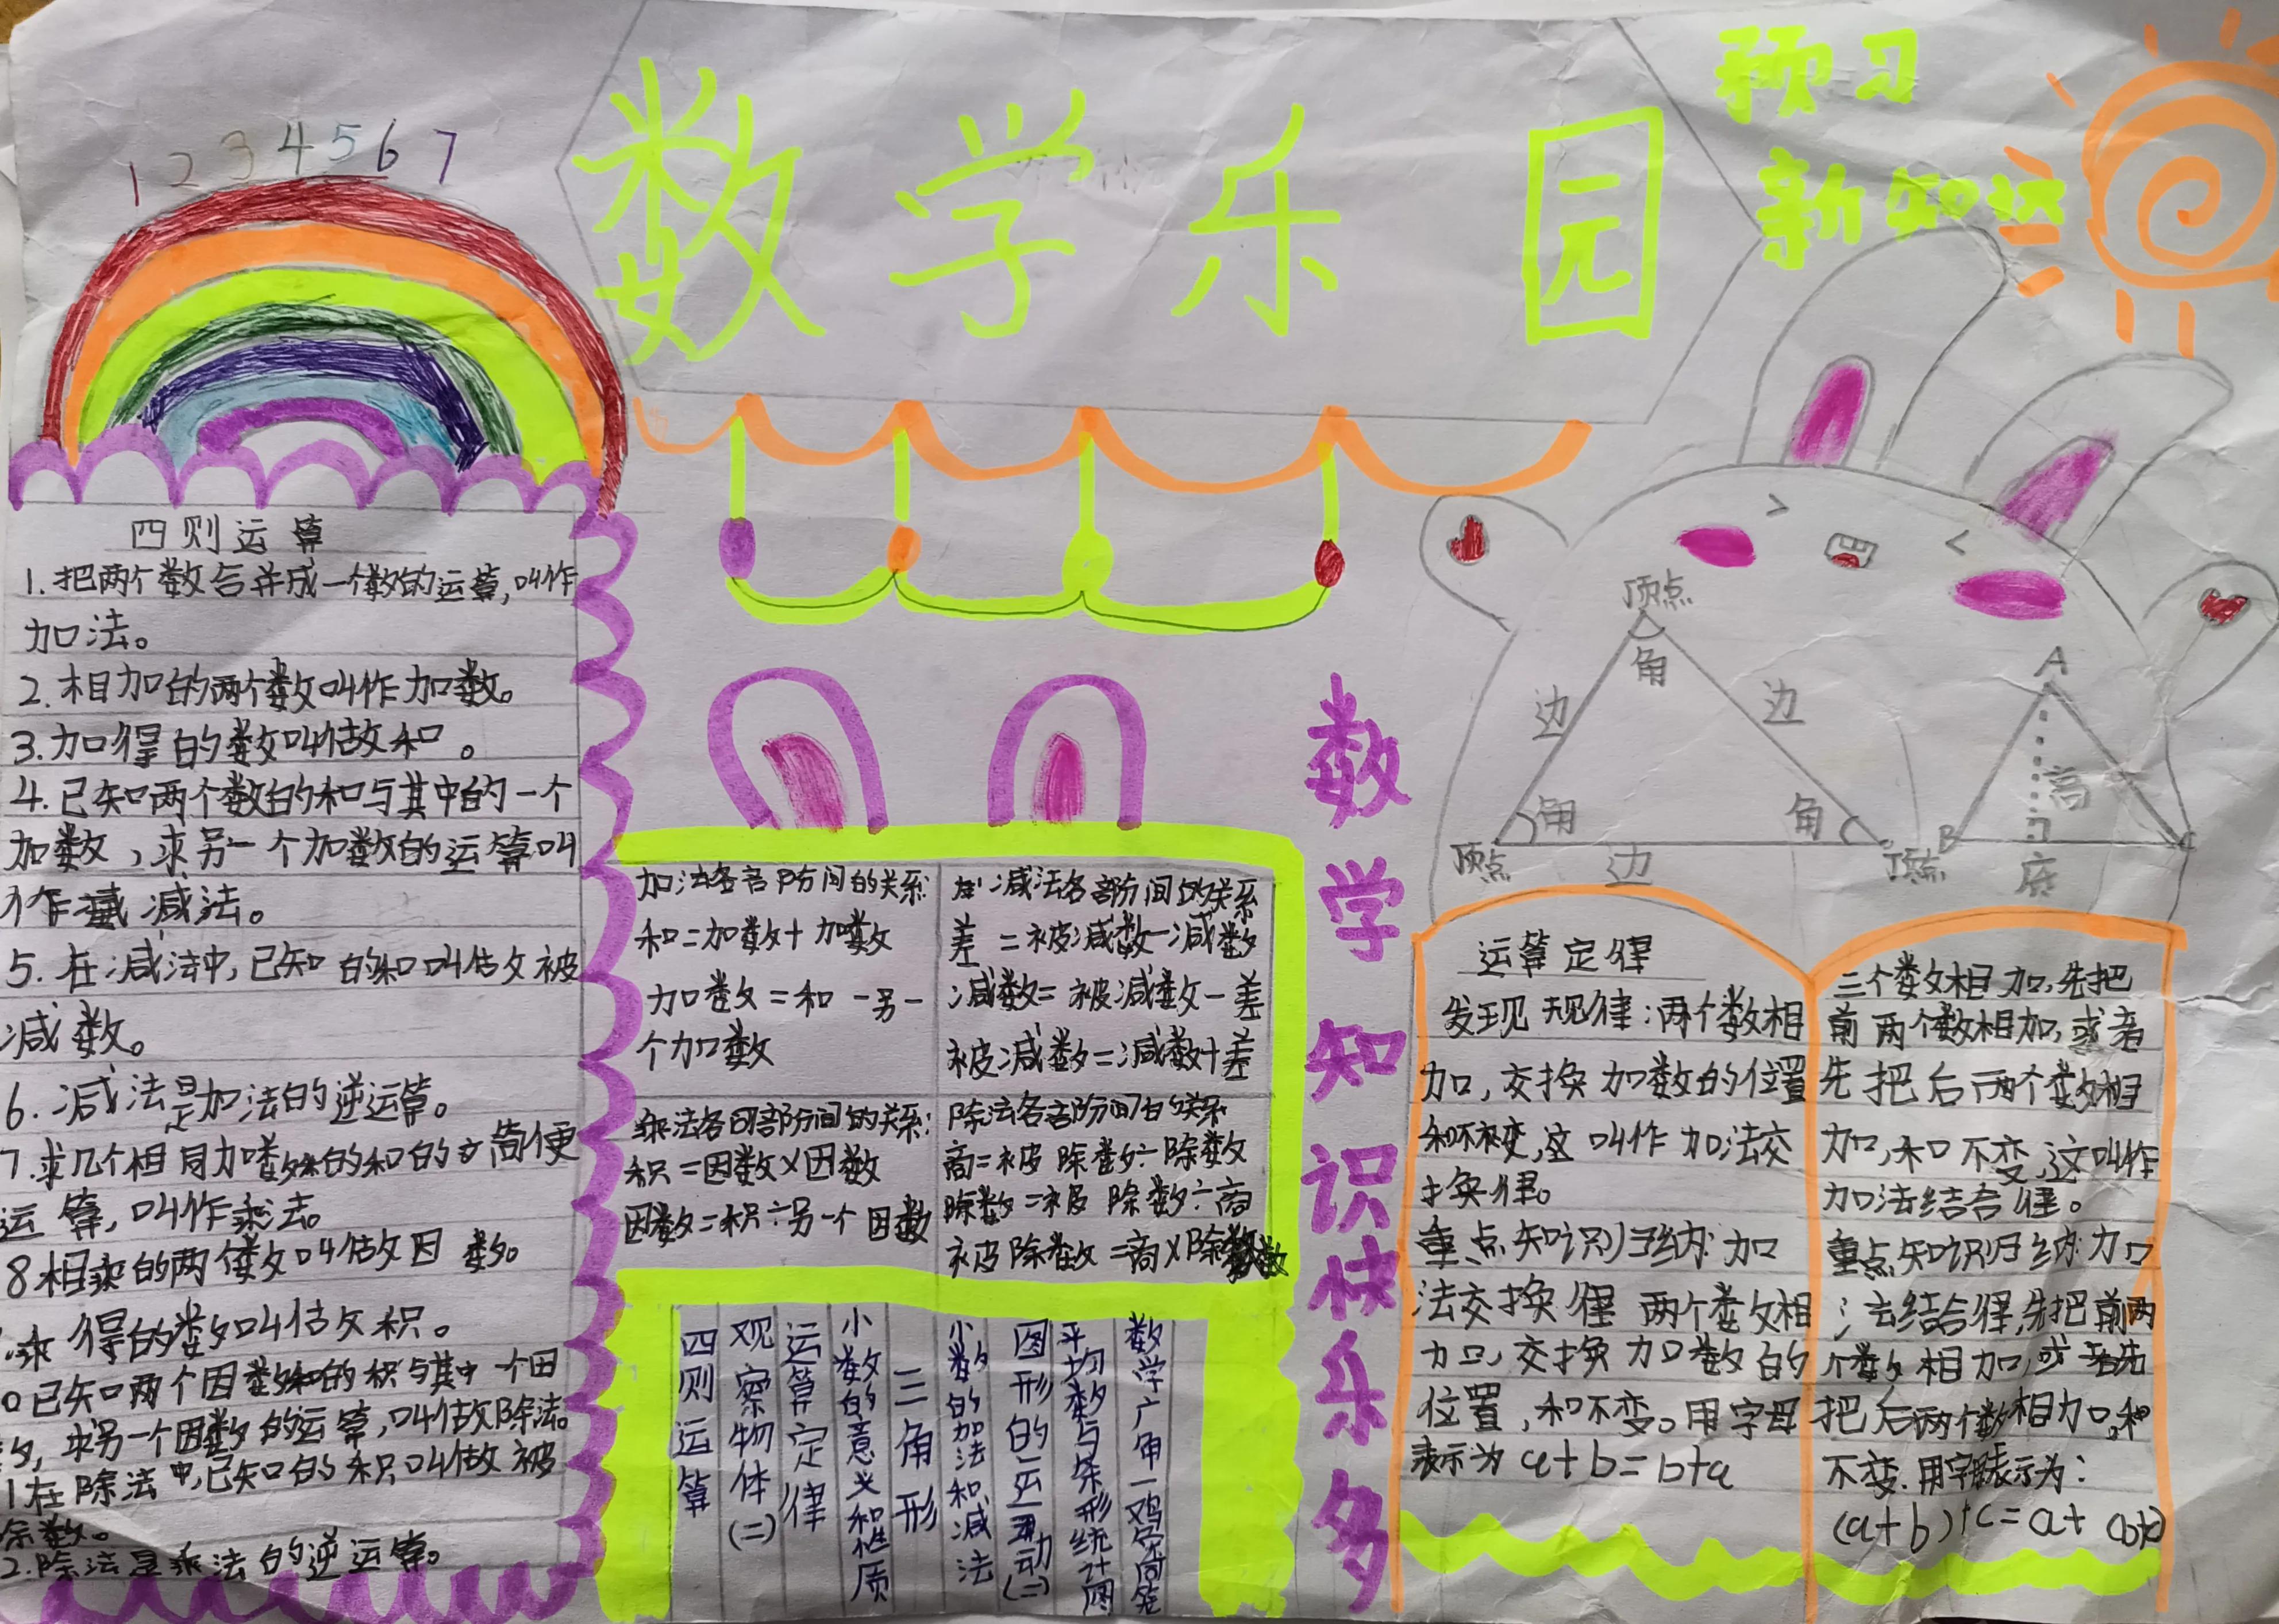 数学乐园
预习
新知识
1 2 3 4 5 6 7
四则运算
1.把两个数合并成一个数的运算,叫作
加法。
2.相加的两个数叫作加数。
3.加得的数叫做和。
4.已知两个数的和与其中的一个
加数,求另一个加数的运算叫
作减法。
5.在减法中,已知的和叫做被
减数。
6.减法是加法的逆运算。
7.求几个相同加数的和的简便
运算,叫作乘法。
8.相乘的两个数叫做因数。
乘得的数叫做积。
0已知两个因数的积与其中一个因
数,求另一个因数的运算,叫做除法。
1.在除法中,已知的积叫做被
除数。
2.除法是乘法的逆运算。
加法各部分间的关系
和=加数+加数
加数=和-另一
个加数
减法各部分间的关系
差=被减数-减数
减数=被减数-差
被减数=减数+差
乘法各部分间的关系:
积=因数×因数
因数=积÷另一个因数
除法各部分间的关系
商=被除数÷除数
除数=被除数÷商
被除数=商×除数
四则运算
观察物体(二)
运算定律
小数的意义和性质
三角形
小数的加法和减法
图形的运动(二)
平均数与条形统计图
数学广角一鸡兔同笼
数学知识快乐多
顶点
角
边
边
角
角
顶点
边
顶点
A
高
B
C
底
运算定律
发现规律:两个数相
加,交换加数的位置
和不变,这叫作加法交
换律。
重点知识归纳:加
法交换律两个数相
加,交换加数的
位置,和不变。用字母
表示为a+b=b+a
三个数相加,先把
前两个数相加,或者
先把后两个数相
加,和不变,这叫作
加法结合律。
重点知识归纳:加
法结合律,先把前两
个数相加,或者先
把后两个数相加,和
不变.用字母表示为:
(a+b)+c=a+(b+c)